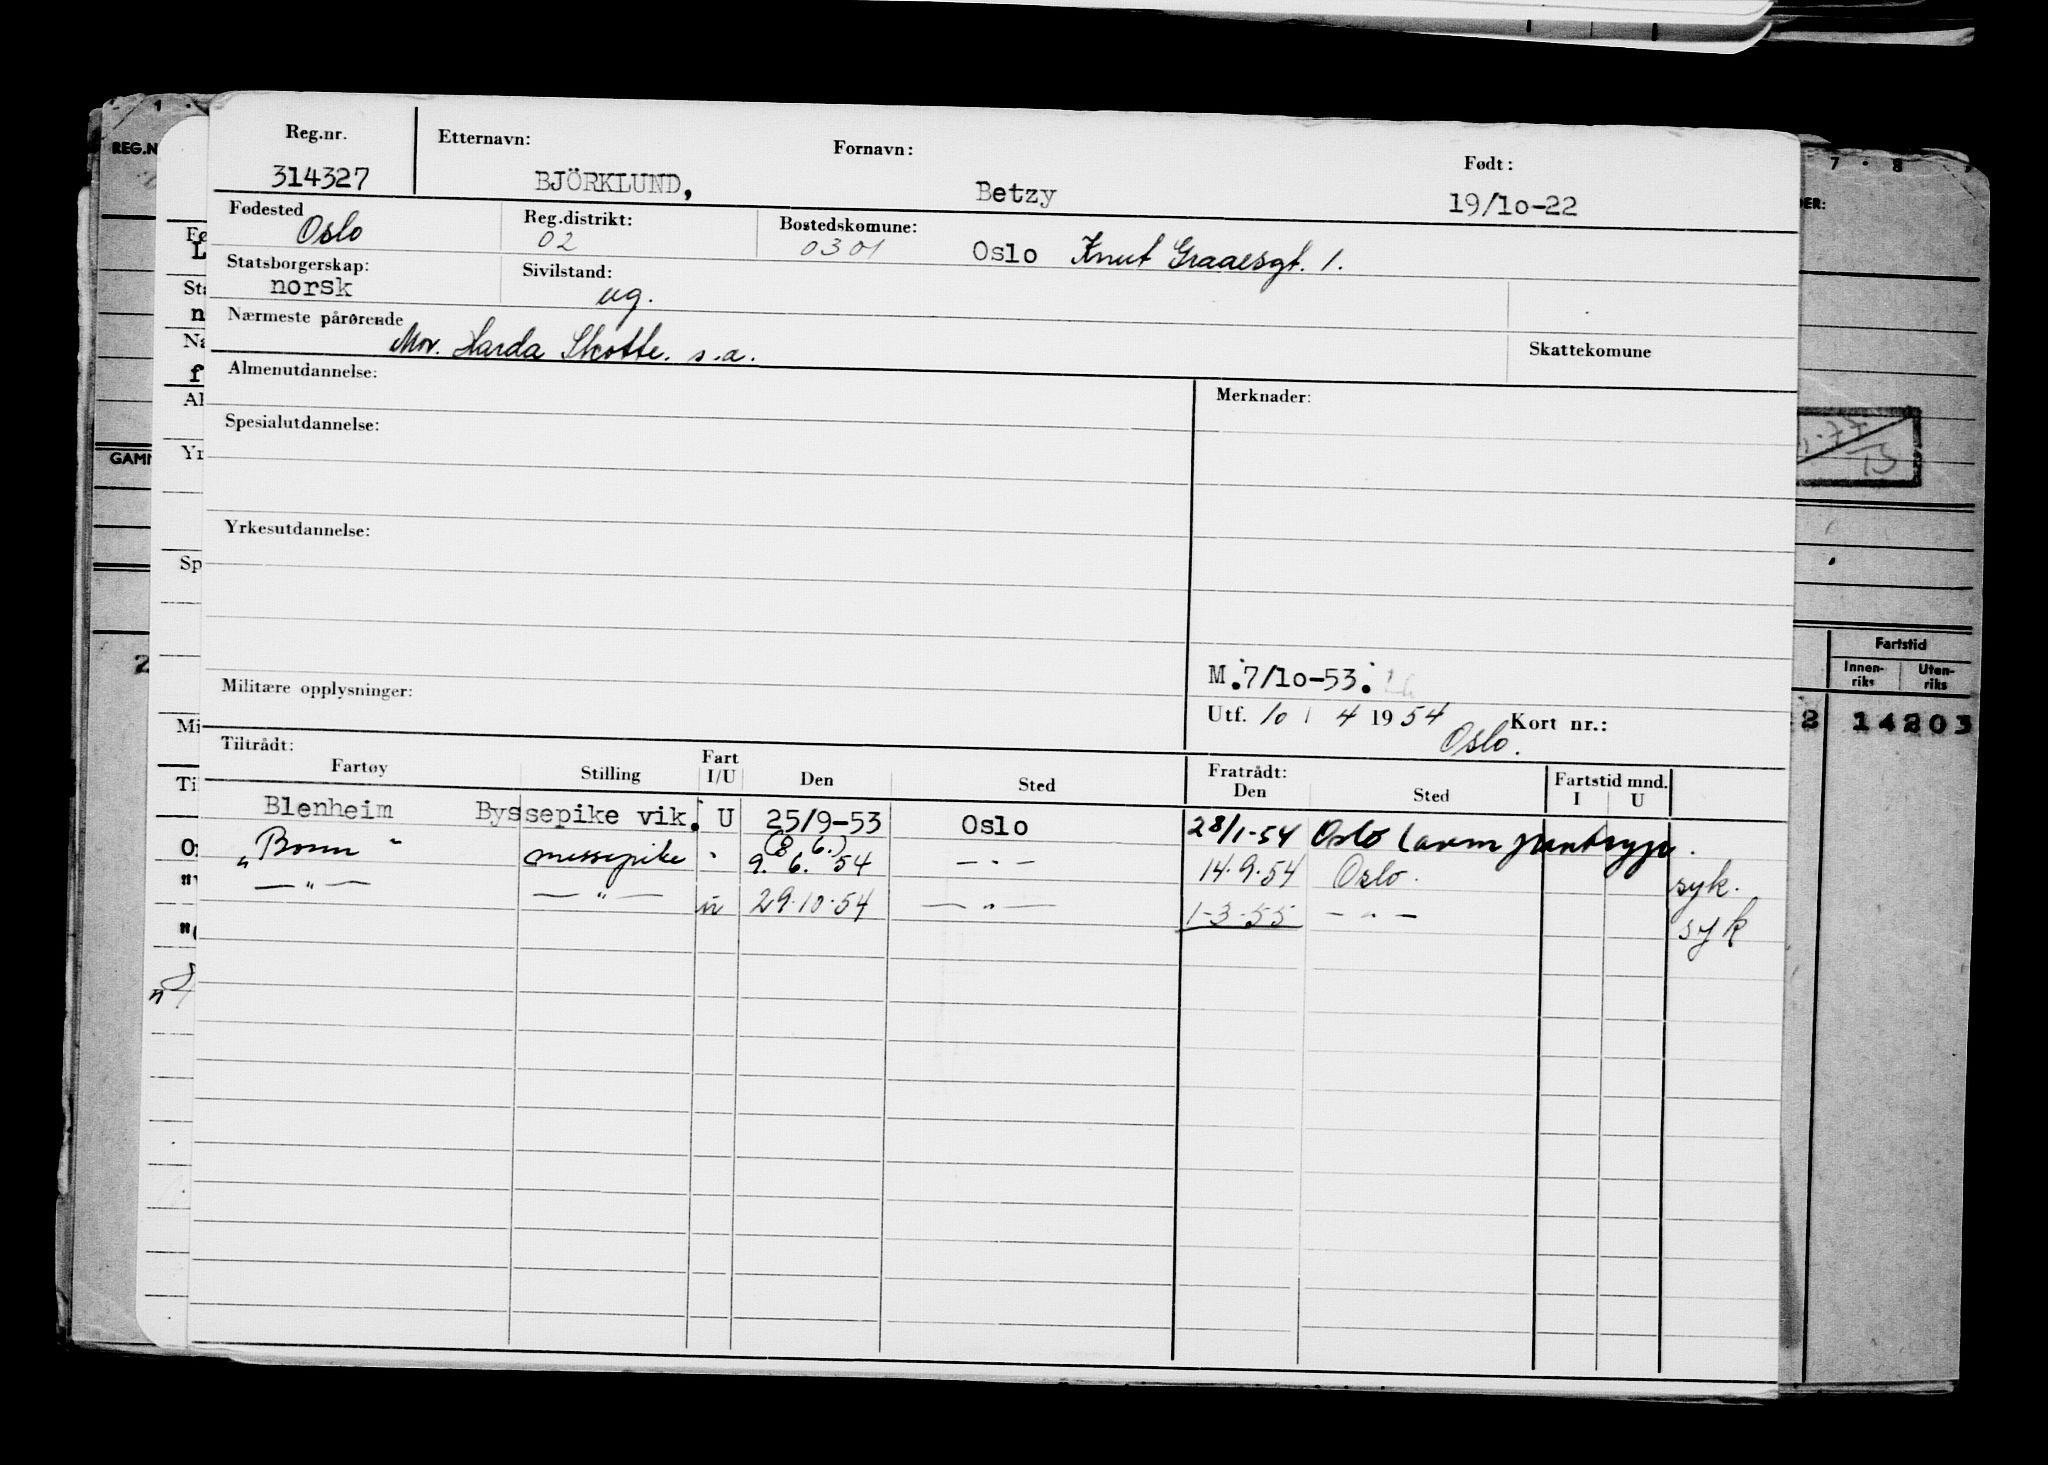 Reg.nr. Etternavn: Fornavn: Født:
314327 BJÖRKLUND, Betzy 19/10-22
Fødested Reg.distrikt: Bostedskomune:
Oslo 02 0301 Oslo Knut Graaesgt. 1.
Statsborgerskap: Sivilstand:
norsk ug.
Nærmeste pårørende Skattekomune
Mor. Harda Skotte. s.a.
Almenutdannelse: Merknader:
Spesialutdannelse:
Yrkesutdannelse:
M.7/10-53.
Militære opplysninger:
Utf. 10 / 4 1954 Kort nr.:
Oslo.
Tiltrådt: Fratrådt:
Fartøy Stilling Fart I/U Den Sted Den Sted Fartstid mnd. I U
Blenheim Byssepike vik. U 25/9-53 Oslo 28/1-54 Oslo
(8 6.)
messepike " 9. 6. 54 — " — 14.9.54 Oslo. syk.
— " — — " — u 29.10.54 — " — 1-3-55 — " — syk
REG.N
GAMN
DER:
Fartstid
Innen-riks Uten-riks
2 14203